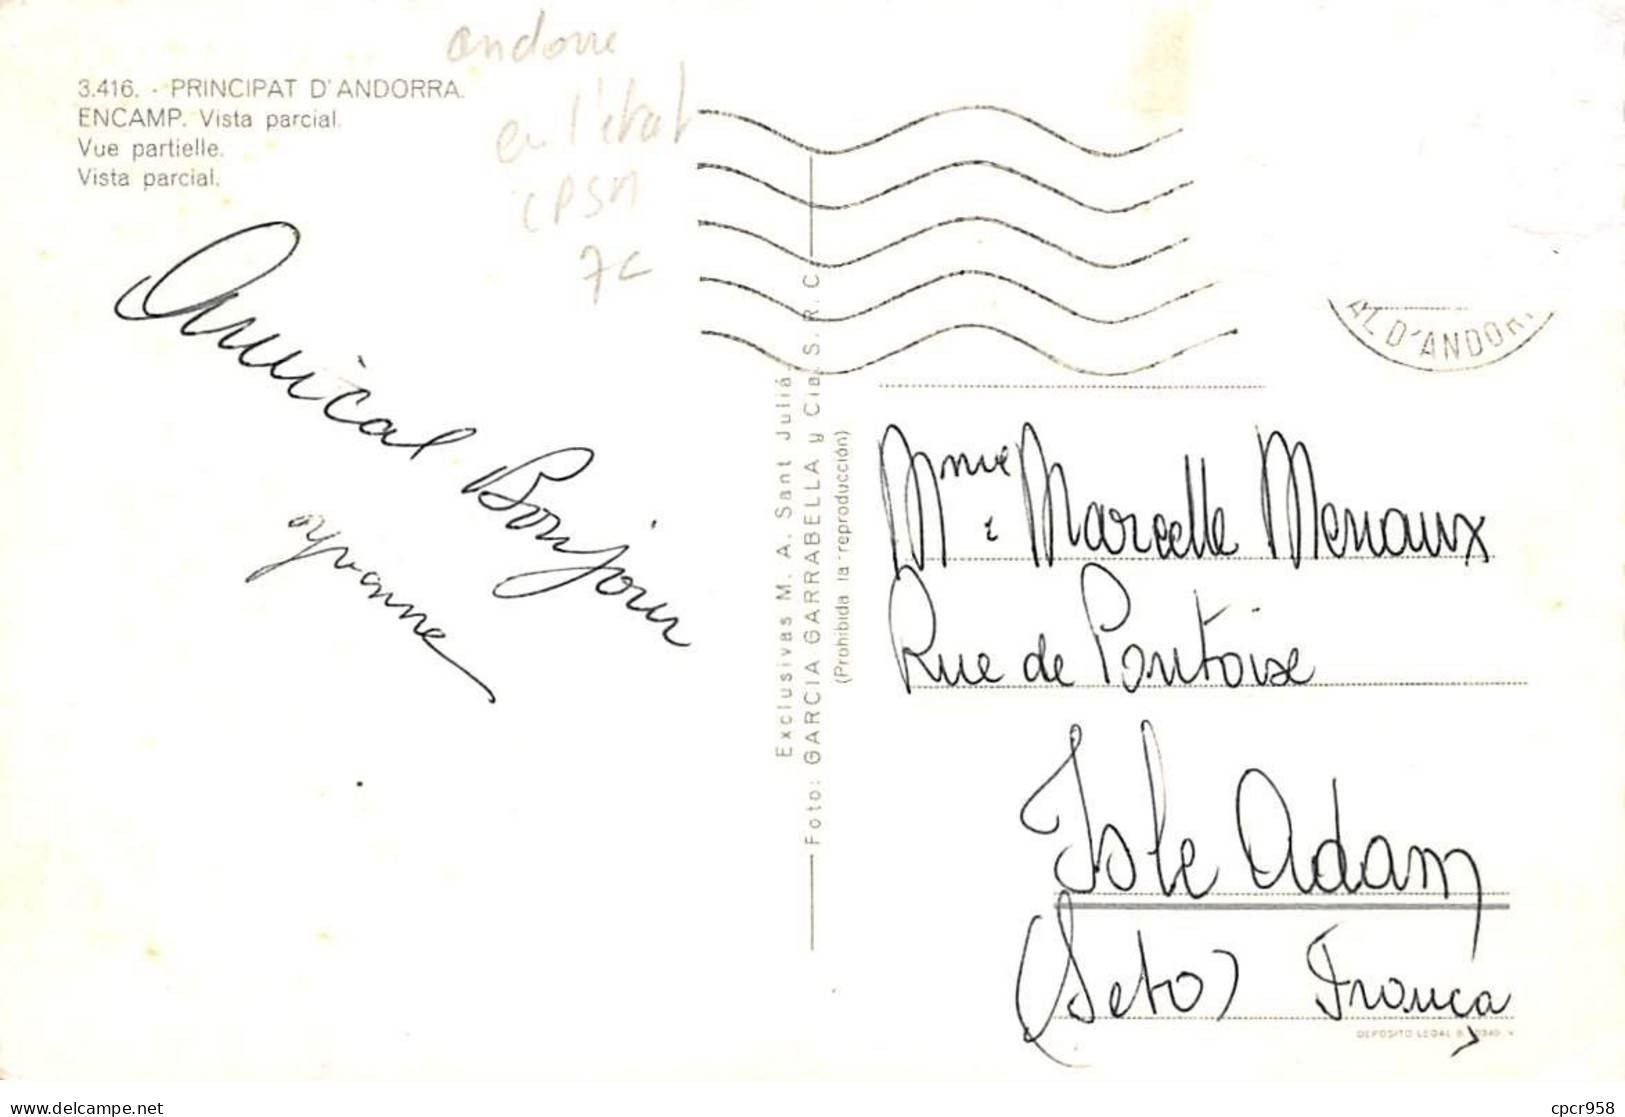 3.416. - PRINCIPAT D'ANDORRA.
ENCAMP. Vista parcial.
Vue partielle.
Vista parcial.
andorre
en l'état
CPSM
7c
Amical Bonjour
yvonne
Exclusivas M. A. Sant Juliá
Foto: GARCIA GARRABELLA y Cia. S. R. C.
(Prohibida la reproducción)
AL D'ANDOR
Mme Marcelle Menaux
Rue de Pontoise
Isle Adam
(Seto) França
DEPOSITO LEGAL B.
delcampe.net
cpcr958